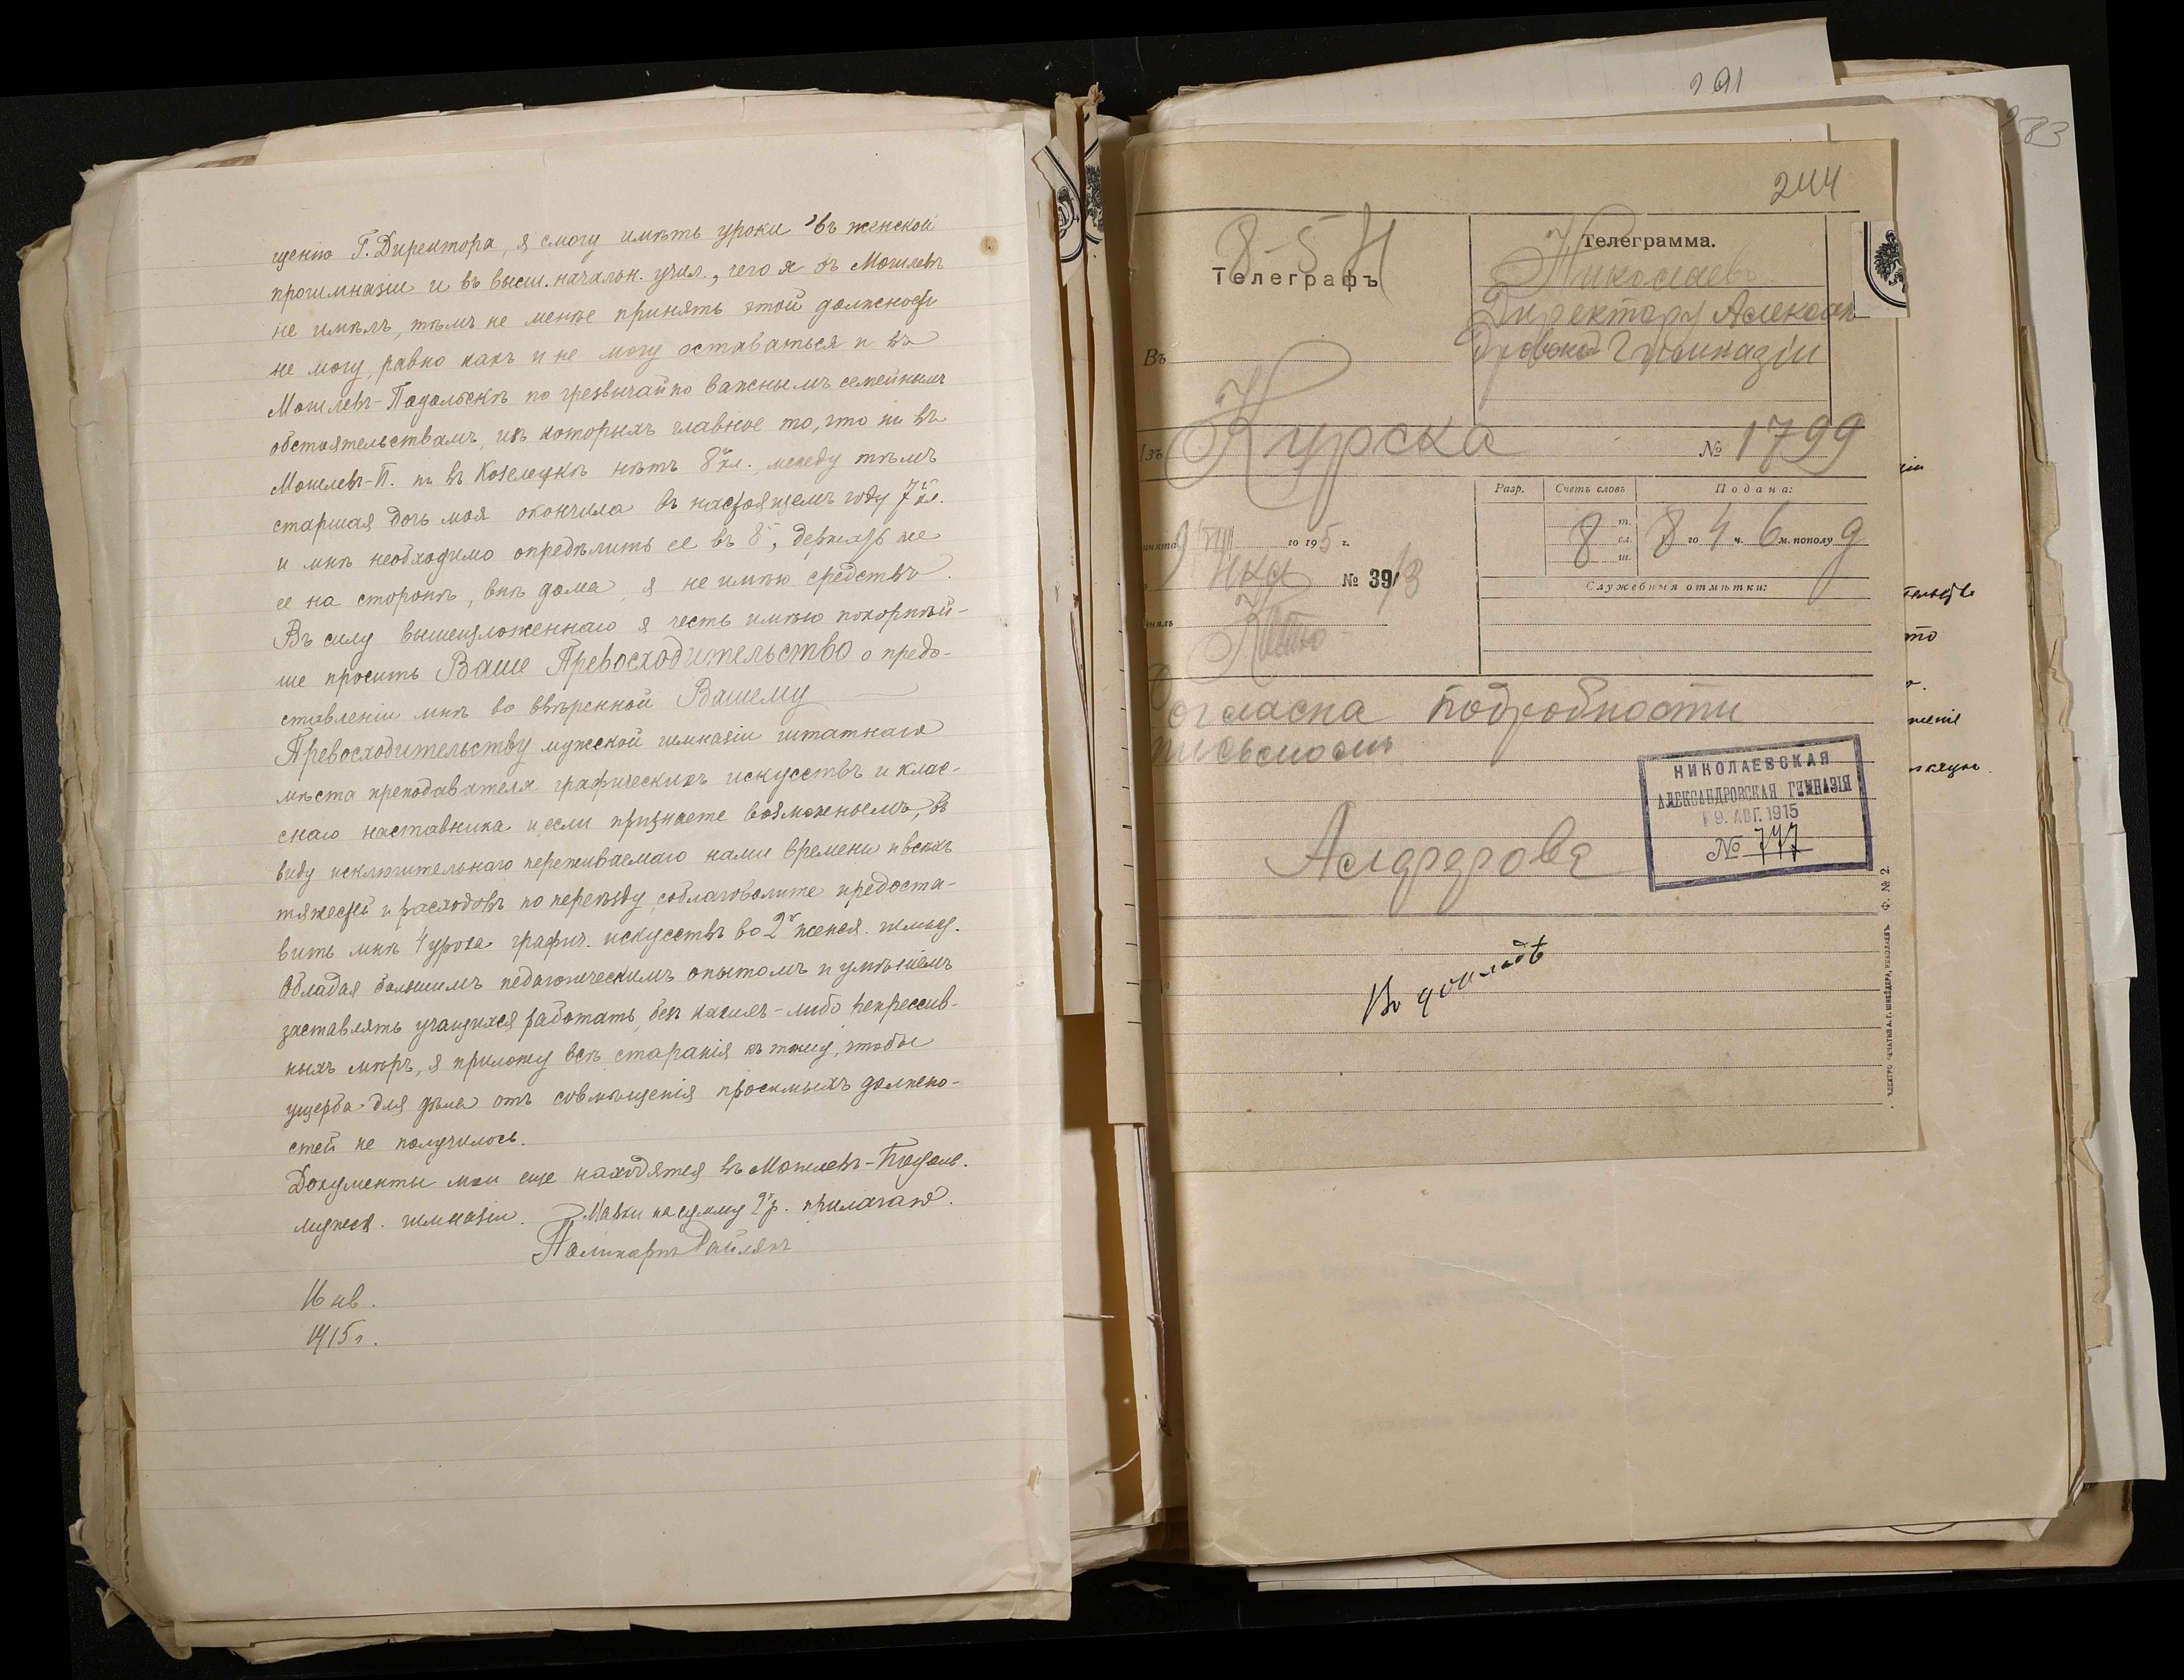 щенію Г. Директора, я смогу имѣть уроки въ женской
прогимназіи и въ высш. начальн. учил., чего я въ Могилевѣ
не имѣлъ, тѣмъ не менѣе принять этой должности
не могу, равно какъ и не могу оставаться и въ
Могилевѣ-Подольскѣ по чрезвычайно важнымъ семейнымъ
обстоятельствамъ, изъ которыхъ главное то, что ни въ
Могилевѣ-П. ни въ Козелецкѣ нѣтъ 8го кл. между тѣмъ
старшая дочь моя окончила въ настоящемъ году 7й кл.
и мнѣ необходимо опредѣлить ее въ 8й, держать же
ее на сторонѣ, внѣ дома, я не имѣю средствъ.
Въ силу вышеизложеннаго я честь имѣю покорнѣй-
ше просить Ваше Превосходительство о предо-
ставленіи мнѣ во ввѣренной Вашему
Превосходительству мужской гимназіи штатнаго
мѣста преподавателя графическихъ искусствъ и клас-
снаго наставника и, если признаете возможнымъ, въ
виду исключительнаго переживаемаго нами времени и всѣхъ
тяжестей и расходовъ по переѣзду соблаговолите предоста-
вить мнѣ 4 урока графич. искусствъ во 2й женск. гимназ.
Обладая большимъ педагогическимъ опытомъ и умѣніемъ
заставлять учащихся работать, безъ какихъ-либо репрессив-
ныхъ мѣръ, я приложу всѣ старанія къ тому, чтобы
ущерба для дѣла отъ совмѣщенія просимыхъ должно-
стей не получилось.
Документы мои еще находятся въ Могилевѣ-Подоль.
мужск. гимназіи. Марки на сумму 2 р. прилагаю.
Поликарпъ Райлянъ
1915 г.
291
283
244
Телеграмма.
8-5 Н
Телеграфъ
Николаевъ
Директору Алексан
дровской Гимназіи
Въ
Изъ Курска
№ 1799
Разр. Счетъ словъ Подана:
т.
8 сл. 8 го 4 ч. 6 м. пополу 9
ш.
Принята 9 VIII го 1915 г.
№ 39/3
Служебныя отмѣтки:
Согласна подробности
письмомъ
Алферова
НИКОЛАЕВСКАЯ
АЛЕКСАНДРОВСКАЯ ГИМНАЗІЯ
9. АВГ. 1915
№ 777
Ф. № 2.